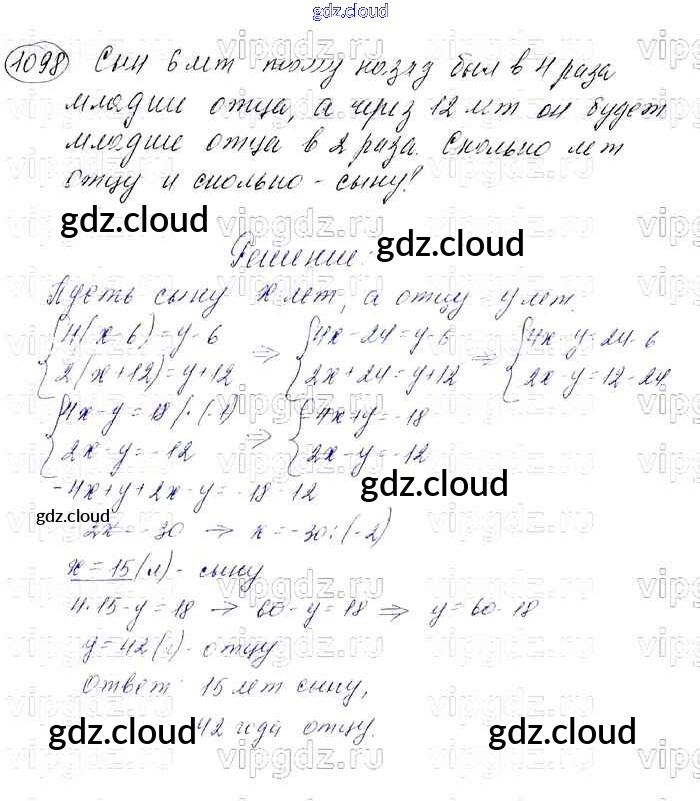 gdz.cloud
1098 Сын 6 лет тому назад был в 4 раза
младше отца, а через 12 лет он будет
младше отца в 2 раза. Сколько лет
отцу и сколько - сыну?
gdz.cloud gdz.cloud
Решение.
Пусть сыну x лет, а отцу y лет.
{4(x-6)=y-6 ⇒ {4x-24=y-6 ⇒ {4x-y=24-6
{2(x+12)=y+12 {2x+24=y+12 {2x-y=12-24
{4x-y=18 |·(-1) ⇒ {-4x+y=-18
{2x-y=-12 {2x-y=-12
-4x+y+2x-y=-18-12 gdz.cloud
gdz.cloud
-2x=-30 ⇒ x=-30:(-2)
x=15(л)-сыну
4·15-y=18 ⇒ 60-y=18 ⇒ y=60-18
y=42(г)-отцу
Ответ: 15 лет сыну,
42 года отцу.
gdz.cloud gdz.cloud
vipgdz.ru